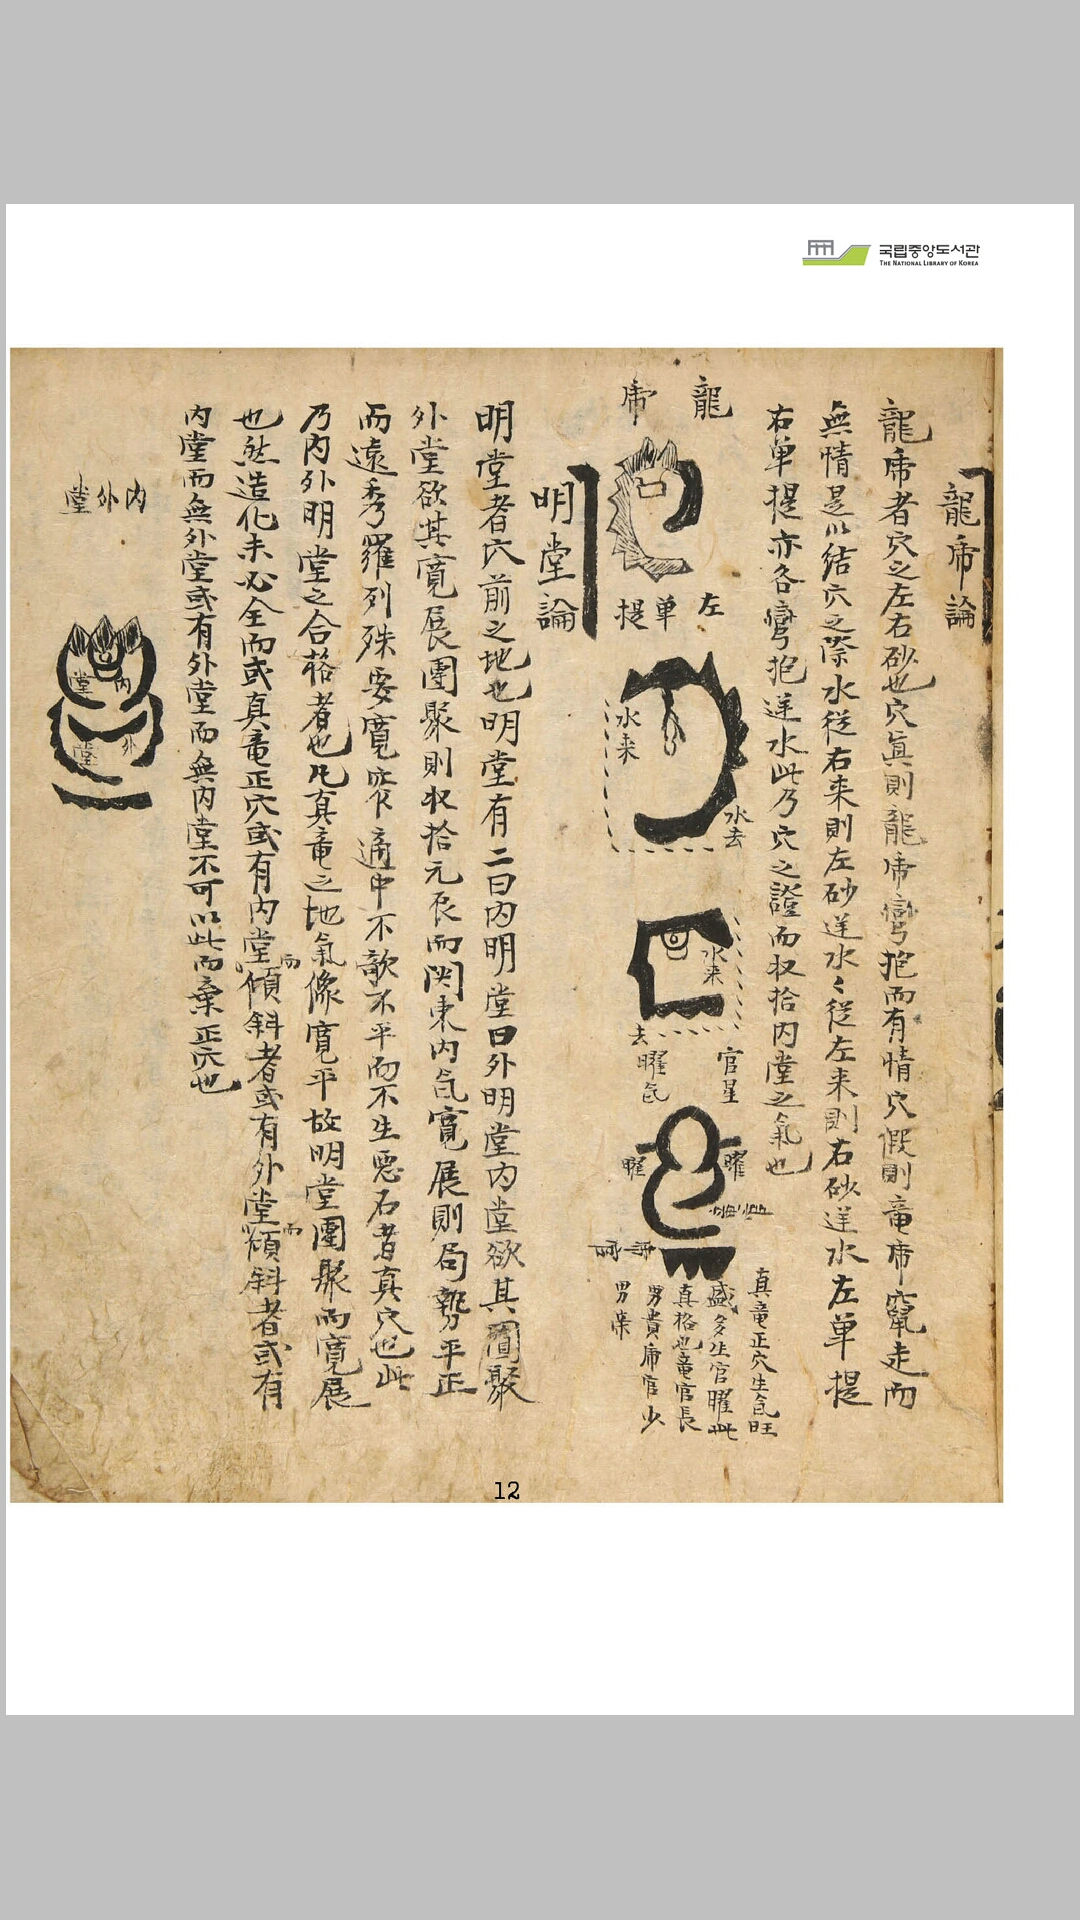 국립중앙도서관
THE NATIONAL LIBRARY OF KOREA
龍帍論
龍帍者穴之左右砂也穴眞則龍帍彎抱而有情穴假則竜帍竄走而
無情是以結穴之際水從右来則左砂逆水々從左来則右砂逆水左单提
右单提亦各彎抱逆水此乃穴之證而収拾内堂之氣也
龍帍
左单提
水来
水去
水来
去
官星
曜氣
曜
曜
真竜正穴生氣旺
盛多生官曜此
真格也竜官長
男貴帍官少
男
明堂論
明堂者穴前之地也明堂有二曰内明堂曰外明堂内堂欲其團聚
外堂欲其寬展團聚則収拾元辰而関束内氣寬展則局勢平正
而遠秀羅列殊要寬窄適中不欹不平而不生惡石者真穴也此
乃内外明堂之合格者也凡真竜之地氣像寬平故明堂團聚而寬展
也然造化未必全而或真竜正穴或有内堂而傾斜者或有外堂而傾斜者或有
内堂而無外堂或有外堂而無内堂不可以此而棄正穴也
内外堂
内堂
外堂
12